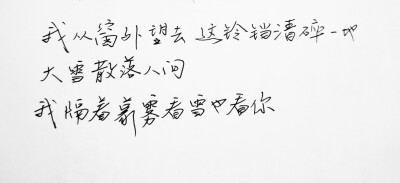 我从窗外望去 这铃铛清碎一地
大雪散落人间
我隔着慕雾看雪也看你